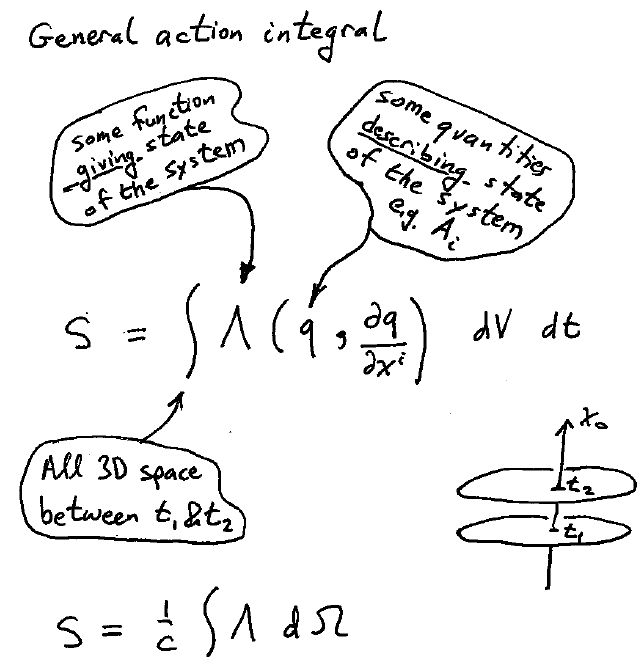 General action integral
some function
giving state
of the system
some quantities
describing state
of the system
e.g. A_i
S = ∫ Λ (q, ∂q/∂x^i) dV dt
All 3D space
between t₁ & t₂
x₀
t₂
t₁
S = 1/c ∫ Λ dΩ